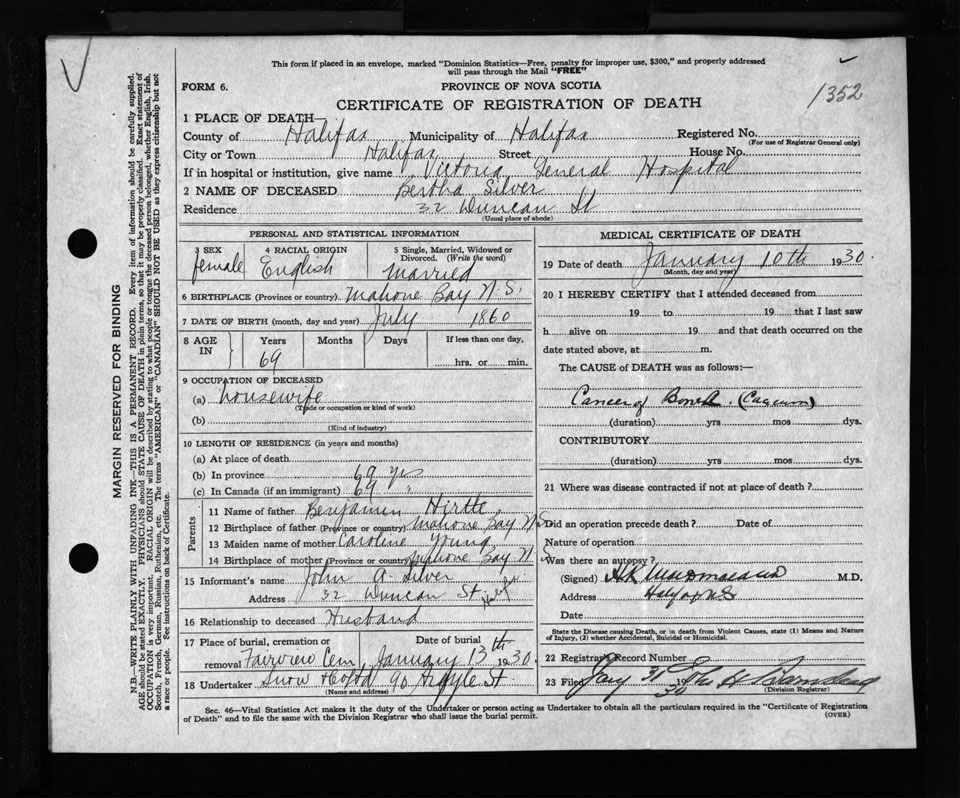 This form if placed in an envelope, marked "Dominion Statistics—Free, penalty for improper use, $300," and properly addressed
will pass through the Mail "FREE"
FORM 6.
PROVINCE OF NOVA SCOTIA
1352
CERTIFICATE OF REGISTRATION OF DEATH
1 PLACE OF DEATH—
County of Halifax Municipality of Halifax Registered No.
(For use of Registrar General only)
City or Town Halifax Street House No.
If in hospital or institution, give name Victoria General Hospital
2 NAME OF DECEASED Bertha Silver
Residence 32 Duncan St
(Usual place of abode)
PERSONAL AND STATISTICAL INFORMATION
3 SEX 4 RACIAL ORIGIN 5 Single, Married, Widowed or
Divorced. (Write the word)
female English Married
6 BIRTHPLACE (Province or country) Mahone Bay N.S.
7 DATE OF BIRTH (month, day and year) July 1860
8 AGE IN Years Months Days If less than one day,
69 hrs. or min.
9 OCCUPATION OF DECEASED
(a) housewife
(Trade or occupation or kind of work)
(b)
(Kind of industry)
10 LENGTH OF RESIDENCE (in years and months)
(a) At place of death
(b) In province 69 yrs
(c) In Canada (if an immigrant) 69 "
Parents
11 Name of father Benjamin Hirtle
12 Birthplace of father (Province or country) Mahone Bay N S
13 Maiden name of mother Caroline Young
14 Birthplace of mother (Province or country) Mahone Bay N S
15 Informant's name John A. Silver
Address 32 Duncan St
16 Relationship to deceased Husband
17 Place of burial, cremation or Date of burial
removal Fairview Cem, January 13th 1930.
18 Undertaker Snow 90 Argyle St
(Name and address)
MEDICAL CERTIFICATE OF DEATH
19 Date of death January 10th 1930.
(Month, day and year)
20 I HEREBY CERTIFY that I attended deceased from
19 to 19 that I last saw
h alive on 19 and that death occurred on
date stated above, at m.
The CAUSE of DEATH was as follows:—
Cancer of Bowel (Caecum)
(duration) yrs mos dys.
CONTRIBUTORY
(duration) yrs mos dys.
21 Where was disease contracted if not at place of death?
Did an operation precede death? Date of
Nature of operation
Was there an autopsy?
(Signed) M.D.
Address Halifax NS
Date
State the Disease causing Death, or in death from Violent Causes, state (1) Means and Nature
of Injury, (2) whether Accidental, Suicidal or Homicidal.
22 Registrar's Record Number
23 Filed Jany 31 1930
(Division Registrar)
Sec. 46—Vital Statistics Act makes it the duty of the Undertaker or person acting as Undertaker to obtain all the particulars required in the "Certificate of Registration
of Death" and to file the same with the Division Registrar who shall issue the burial permit.
(OVER)
MARGIN RESERVED FOR BINDING
N.B.—WRITE PLAINLY WITH UNFADING INK—THIS IS A PERMANENT RECORD. Every item of information should be carefully supplied.
AGE should be stated EXACTLY. PHYSICIANS should STATE CAUSE OF DEATH in plain terms, so that it may be properly classified. Exact statement of
OCCUPATION is very important. RACIAL ORIGIN will be described by stating to what people or tongue the deceased person belonged, whether English, Irish,
Scotch, French, German, Russian, Ruthenian, etc. The terms "AMERICAN" or "CANADIAN" SHOULD NOT BE USED as they express citizenship but not
a race or people. See instructions on back of Certificate.